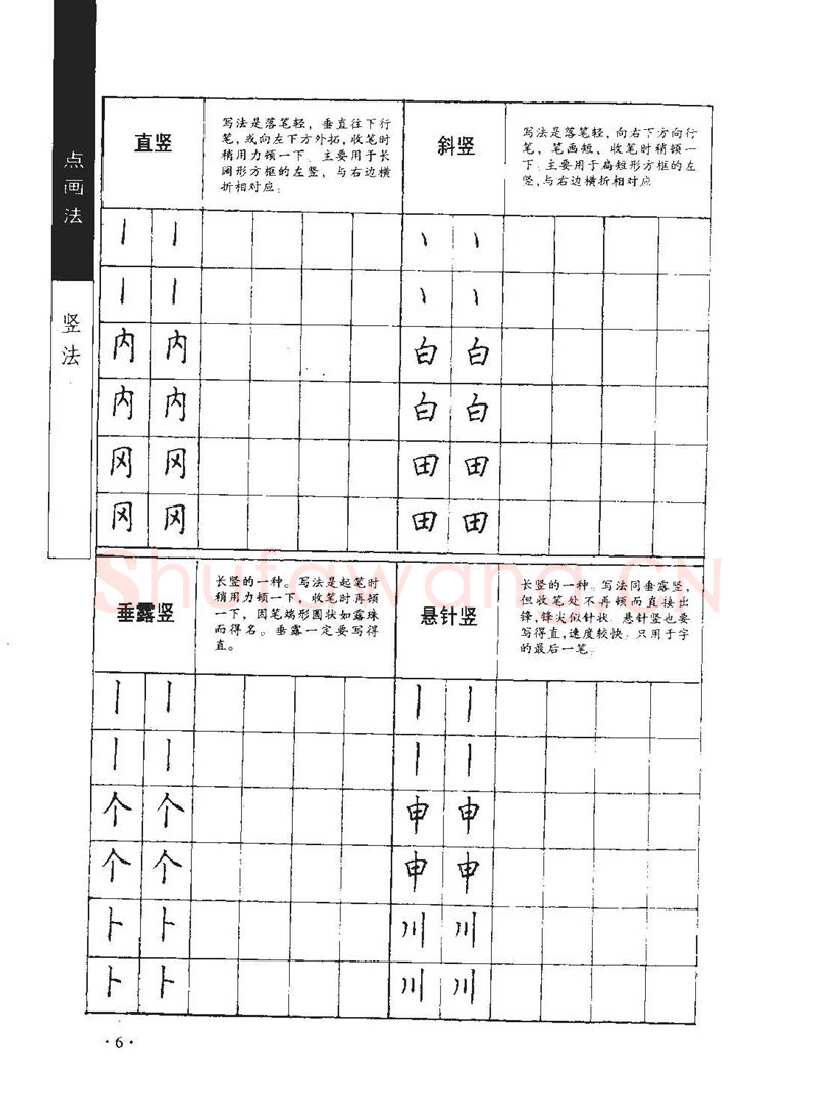 点画法
竖法
直竖
写法是落笔轻，垂直往下行
笔，或向左下方外拓，收笔时
稍用力顿一下。主要用于长
阔形方框的左竖，与右边横
折相对应。
斜竖
写法是落笔轻，向右下方向行
笔，笔画短，收笔时稍顿一
下。主要用于扁短形方框的左
竖，与右边横折相对应
丨 丨
丨 丨
内 内
内 内
冈 冈
冈 冈
丶 丶
丶 丶
白 白
白 白
田 田
田 田
垂露竖
长竖的一种。写法是起笔时
稍用力顿一下，收笔时再顿
一下，因笔端形圆状如露珠
而得名。垂露一定要写得
直。
悬针竖
长竖的一种。写法同垂露竖，
但收笔处不再顿而直接出
锋，锋尖似针状。悬针竖也要
写得直，速度较快。只用于字
的最后一笔。
丨 丨
丨 丨
个 个
个 个
卜 卜
卜 卜
丨 丨
丨 丨
申 申
申 申
川 川
川 川
Shufawang.CN
·6·